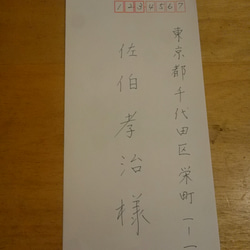 1234567
東京都千代田区栄町一ー一
佐伯孝治様